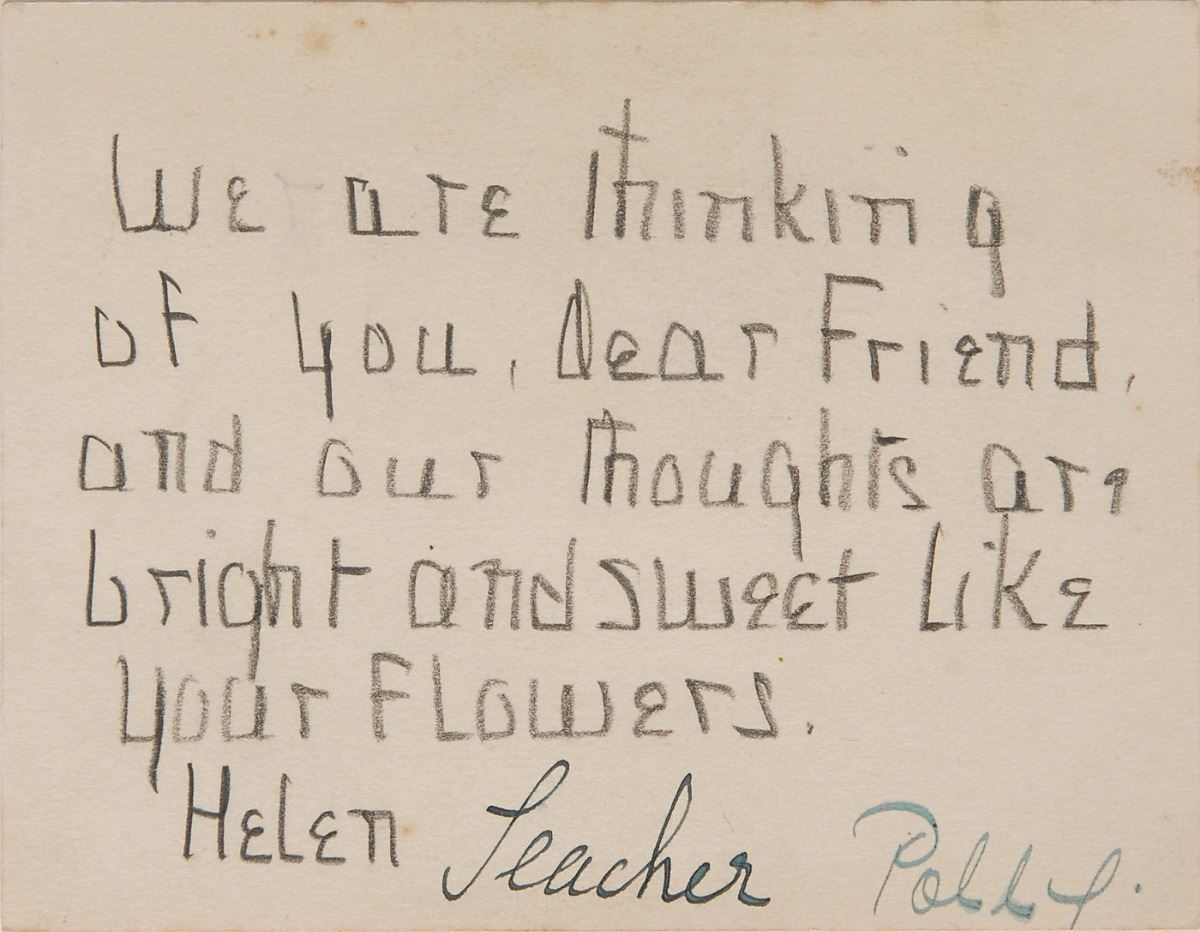 We are thinking
of you, dear Friend,
and our thoughts are
bright and sweet like
your Flowers.
Helen Teacher Polly.